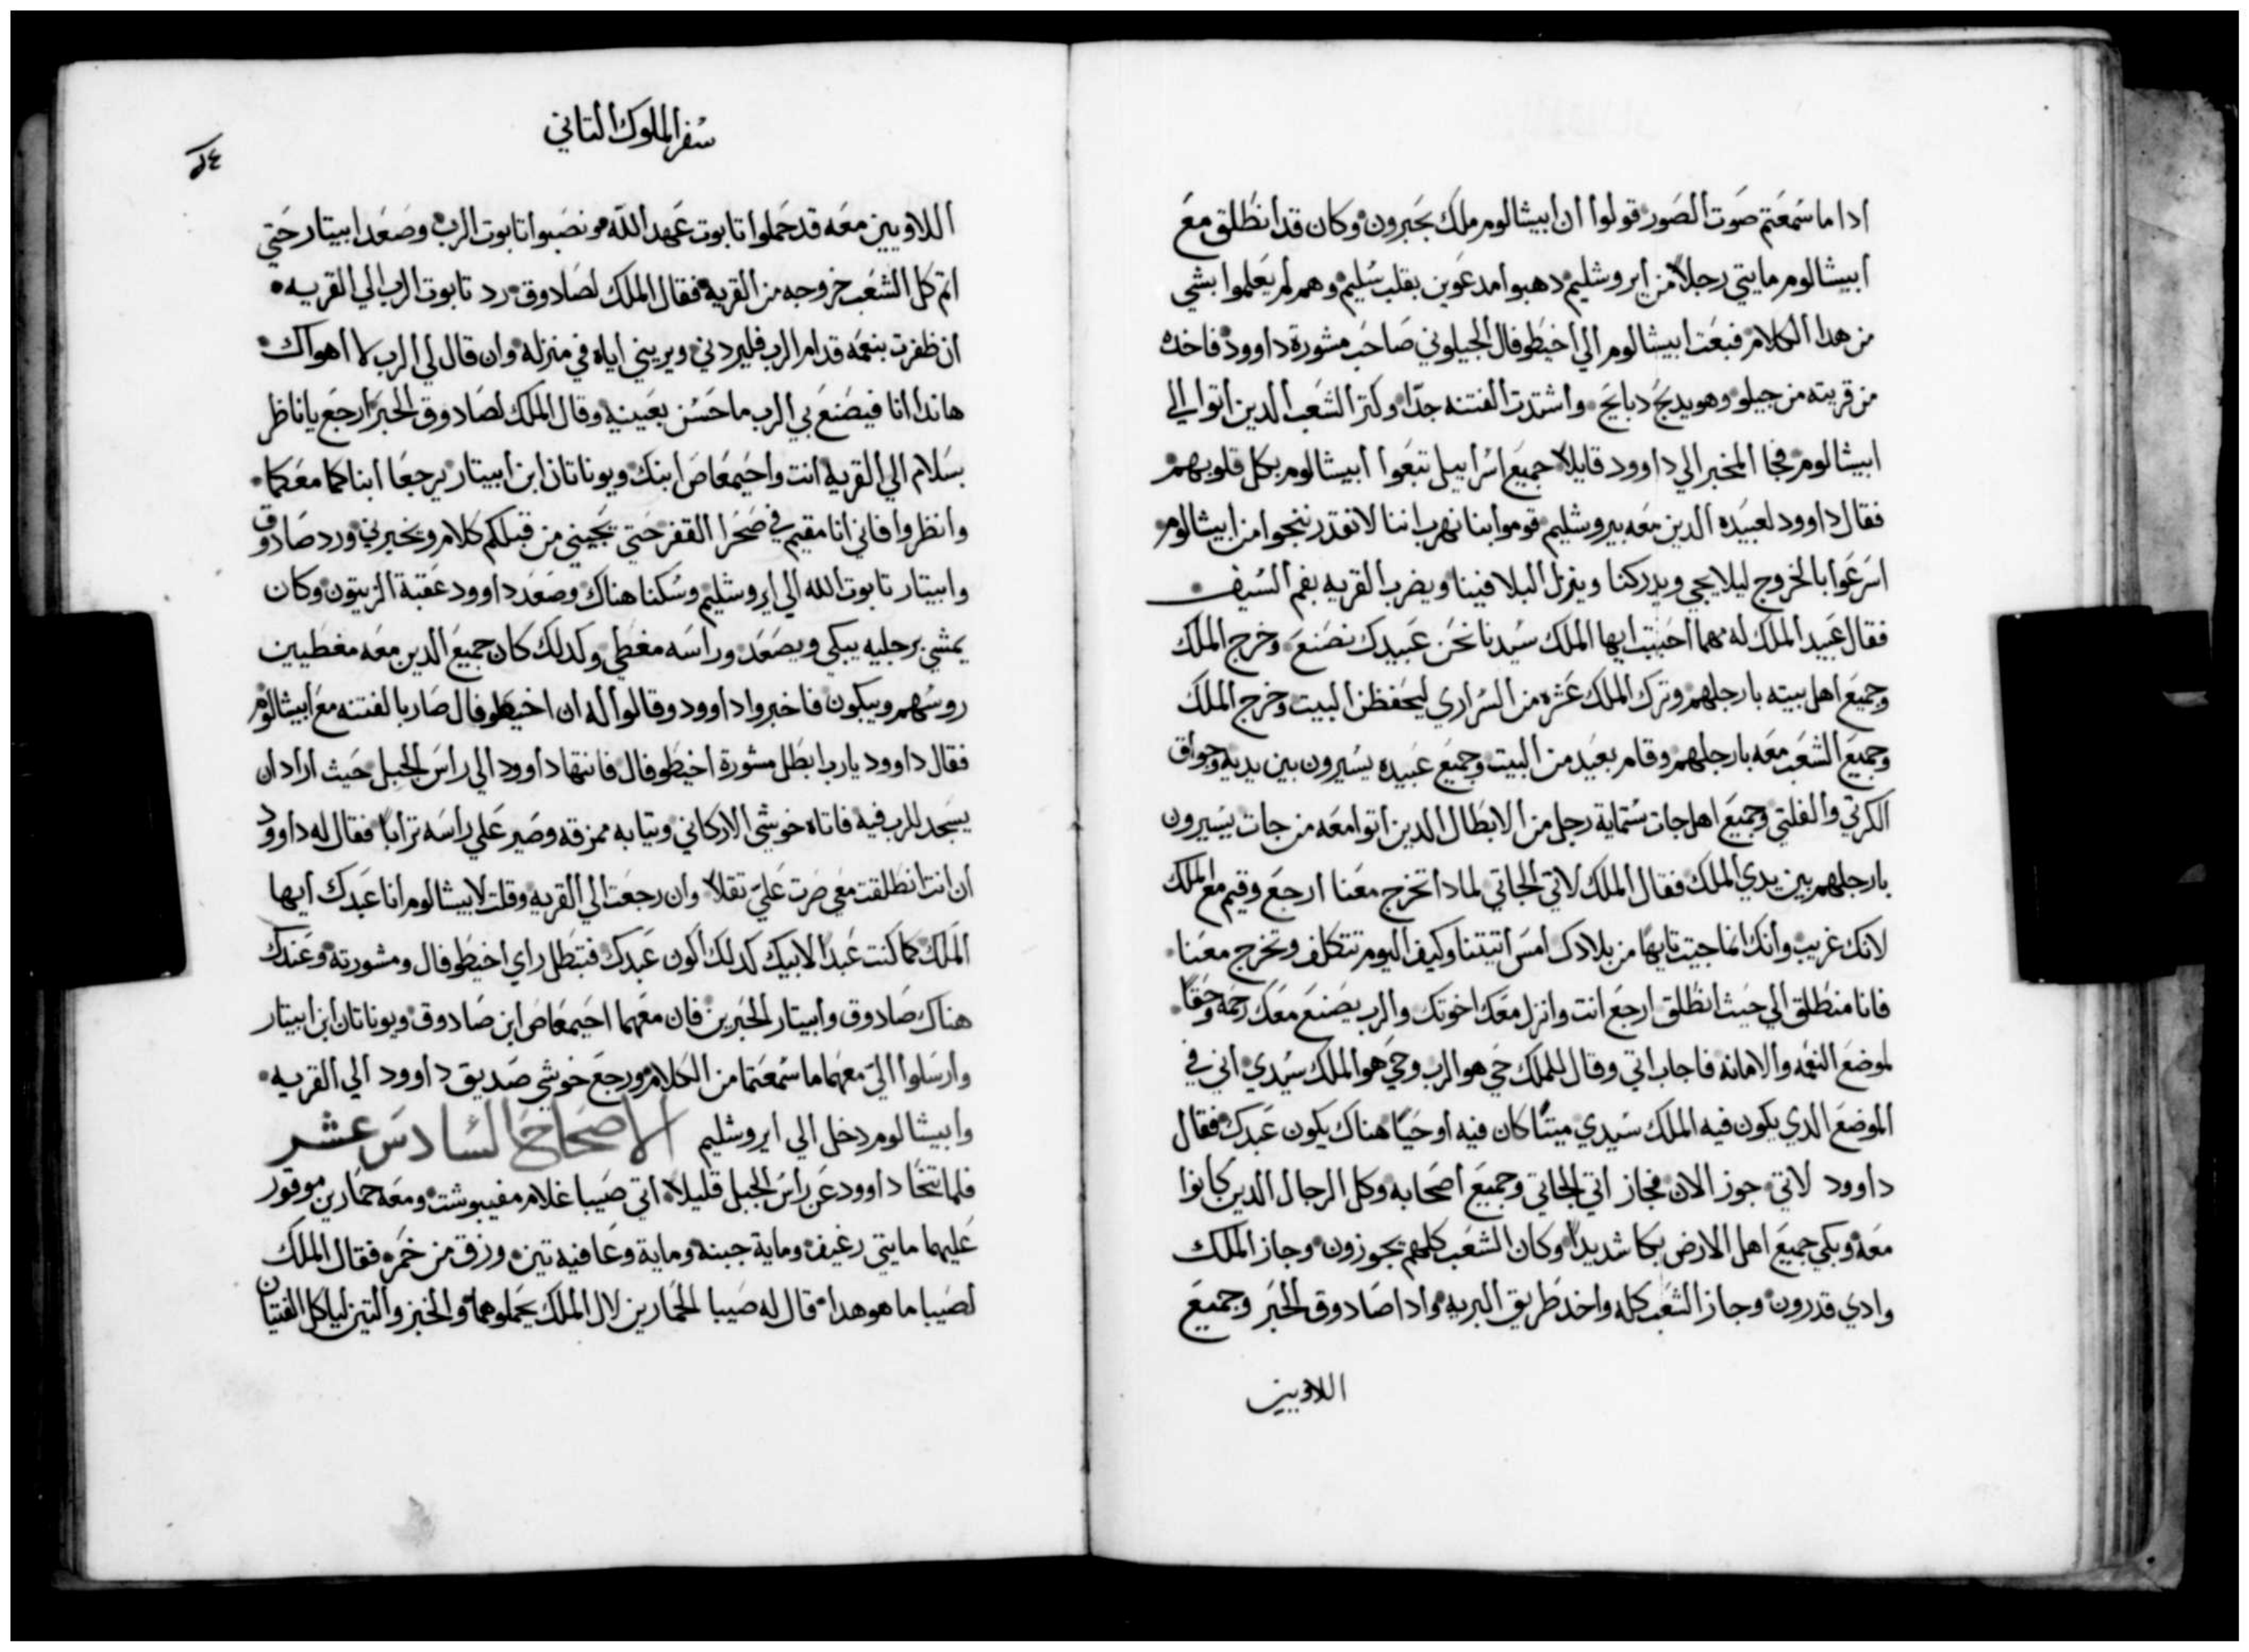 ادا ما سمعتم صوت الصور قولوا ان ابيشالوم ملك بحبرون وكان قد انطلق مع
ابيشالوم مايتي رجلاً من ايروشليم دهبوا مدعوين بقلب سليم وهم لم يعلموا بشي
من هدا الكلام فبعت ابيشالوم الي اخيطوفال الجيلوني صاحب مشورة داوود فاخده
من قريته من جيلو وهو يدبح دبايح واشتدت الفتنه جدّا وكتر الشعب الدين اتوا الي
ابيشالوم فجا المخبر الي داوود قايلاً جميع اسراييل تبعوا ابيشالوم بكل قلوبهم
فقال داوود لعبيده الدين معه بيروشليم قوموا بنا نهرب اننا لا نقدر ننجوا من ابيشالوم
اسرعوا بالخروج ليلا يجي ويدركنا وينزل البلا فينا ويضرب القريه بفم السيف
فقال عبيد الملك له مهما احببت ايها الملك سيدنا نحن عبيدك نصنع وخرج الملك
وجميع اهل بيته بارجلهم وترك الملك عشره من السراري ليحفظن البيت وخرج الملك
وجميع الشعب معه بارجلهم وقام بعيد من البيت وجميع عبيده يسيرون بين يديه وجواق
الكرتي والفلتي وجميع اهل جات ستماية رجل من الابطال الدين اتوا معه من جات يسيرون
بارجلهم بين يدي الملك فقال الملك لاتي الجاتي لمادا تخرج معنا ارجع وقيم مع الملك
لانك غريب وانك انما جيت تايهًا من بلادك امس اتيتنا وكيف اليوم تتكلف وتخرج معنا
فانا منطلق الي حيث انطلق ارجع انت وانزل معك اخوتك والرب يصنع معك رحمه وحقًا
لموضع النعمه والامانه فاجاب اتي وقال للملك حي هو الرب وحي هو الملك سيدي اني في
الموضع الدي يكون فيه الملك سيدي ميتًا كان فيه او حيًا هناك يكون عبدك فقال
داوود لاتي جوز الان فجاز اتي الجاتي وجميع اصحابه وكل الرجال الدين كانوا
معه وبكي جميع اهل الارض بكا شديداً وكان الشعب كلهم يجوزون وجاز الملك
وادي قدرون وجاز الشعب كله واخد طريق البريه وادا صادوق الحبر وجميع
اللاويين
سفر الملوك التاني
اللاويين معه قد حملوا تابوت عهد الله ونصبوا تابوت الرب وصعد ابيتار حتي
اتم كل الشعب خروجه من القريه فقال الملك لصادوق رد تابوت الرب الي القريه
ان ظفرت بنعمه قدام الرب فليردني ويريني اياه في منزله وان قال لي الرب لا اهواك
هاندا انا فيصنع بي الرب ما حسن بعينيه وقال الملك لصادوق الحبر ارجع يا ناظر
بسلام الي القريه انت واحيمعاص ابنك ويوناتان ابن ابيتار يرجعا ابناكما معكما
وانظروا فاني انا مقيم في صحرا القفر حتي يجيني من قبلكم كلام ويخبرني ورد صادوق
وابيتار تابوت الله الي ايروشليم وسكنا هناك وصعد داوود عقبة الزيتون وكان
يمشي برجليه يبكي ويصعد وراسه مغطي وكدلك كان جميع الدين معه مغطيين
روسهم ويبكون فاخبروا داوود وقالوا له ان اخيطوفال صار بالفتنه مع ابيشالوم
فقال داوود يارب ابطل مشورة اخيطوفال فانتها داوود الي راس الجبل حيث اراد ان
يسجد للرب فيه فاتاه خوشي الاركاني وتيابه ممزقه وصير علي راسه تراباً فقال له داوود
ان انت انطلقت معي صرت عليّ تقلاً وان رجعت الي القريه وقلت لابيشالوم انا عبدك ايها
الملك كما كنت عبداً لابيك كدلك اكون عبدك فتبطل راي اخيطوفال ومشورته وعندك
هناك صادوق وابيتار الحبرين فان معهما احيمعاص ابن صادوق ويوناتان ابن ابيتار
وارسلوا اليّ معهما ما سمعتما من الكلام ورجع خوشي صديق داوود الي القريه
وابيشالوم دخل الي ايروشليم الاصحاح السادس عشر
فلما تنحّا داوود عن راس الجبل قليلاً اتي صيبا غلام مفيبوشت ومعه حمارين موقور
عليهما مايتي رغيف وماية جبنه وماية وعافيه تين وزق من خمره فقال الملك
لصيبا ما هو هدا قال له صيبا الحمارين لال الملك يحملوهما والخبز والتين لياكل الفتيان